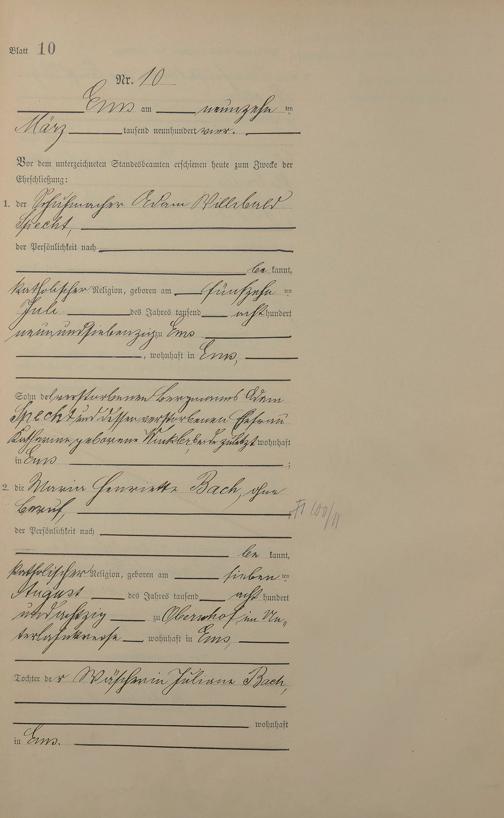 Blatt 10
Nr. 10
Ems am neunzehn ten
März tausend neunhundert vier.
Vor dem unterzeichneten Standesbeamten erschienen heute zum Zwecke der
Eheschließung:
1. der Schuhmacher Adam Willibald
Specht,
der Persönlichkeit nach
be kannt,
katholischer Religion, geboren am fünfzehn ten
Juli des Jahres tausend acht hundert
neunundsiebenzig zu Ems
, wohnhaft in Ems,
Sohn des verstorbenen Bergmanns Adam
Specht und dessen verstorbenen Ehefrau
Katharina, geborene zuletzt wohnhaft
in Ems ;
2. die Maria Henriette Bach, ohne
Beruf,
der Persönlichkeit nach
be kannt,
katholischer Religion, geboren am sieben ten
August des Jahres tausend acht hundert
undachtzig zu Obernhof im Un-
terlahnkreise wohnhaft in Ems,
Tochter de r Wäscherin Juliane Bach,
wohnhaft
in Ems.